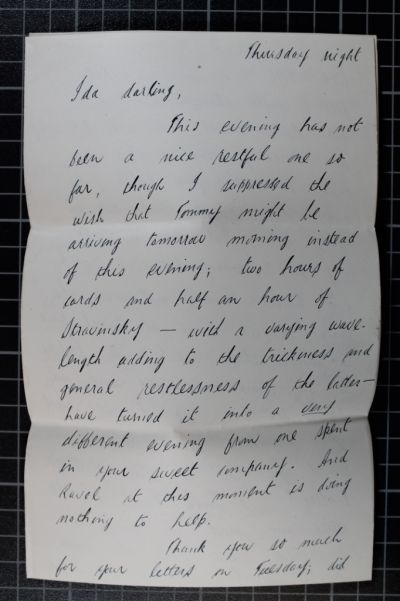 Thursday night
Ida darling,
This evening has not
been a nice restful one so
far, though I suppressed the
wish that Tommy might be
arriving tomorrow morning instead
of this evening; two hours of
cards and half an hour of
Stravinsky — with a varying wave-
length adding to the trickiness and
general restlessness of the latter —
have turned it into a very
different evening from one spent
in your sweet company. And
Ravel at this moment is doing
nothing to help.
Thank you so much
for your letters on Tuesday; did